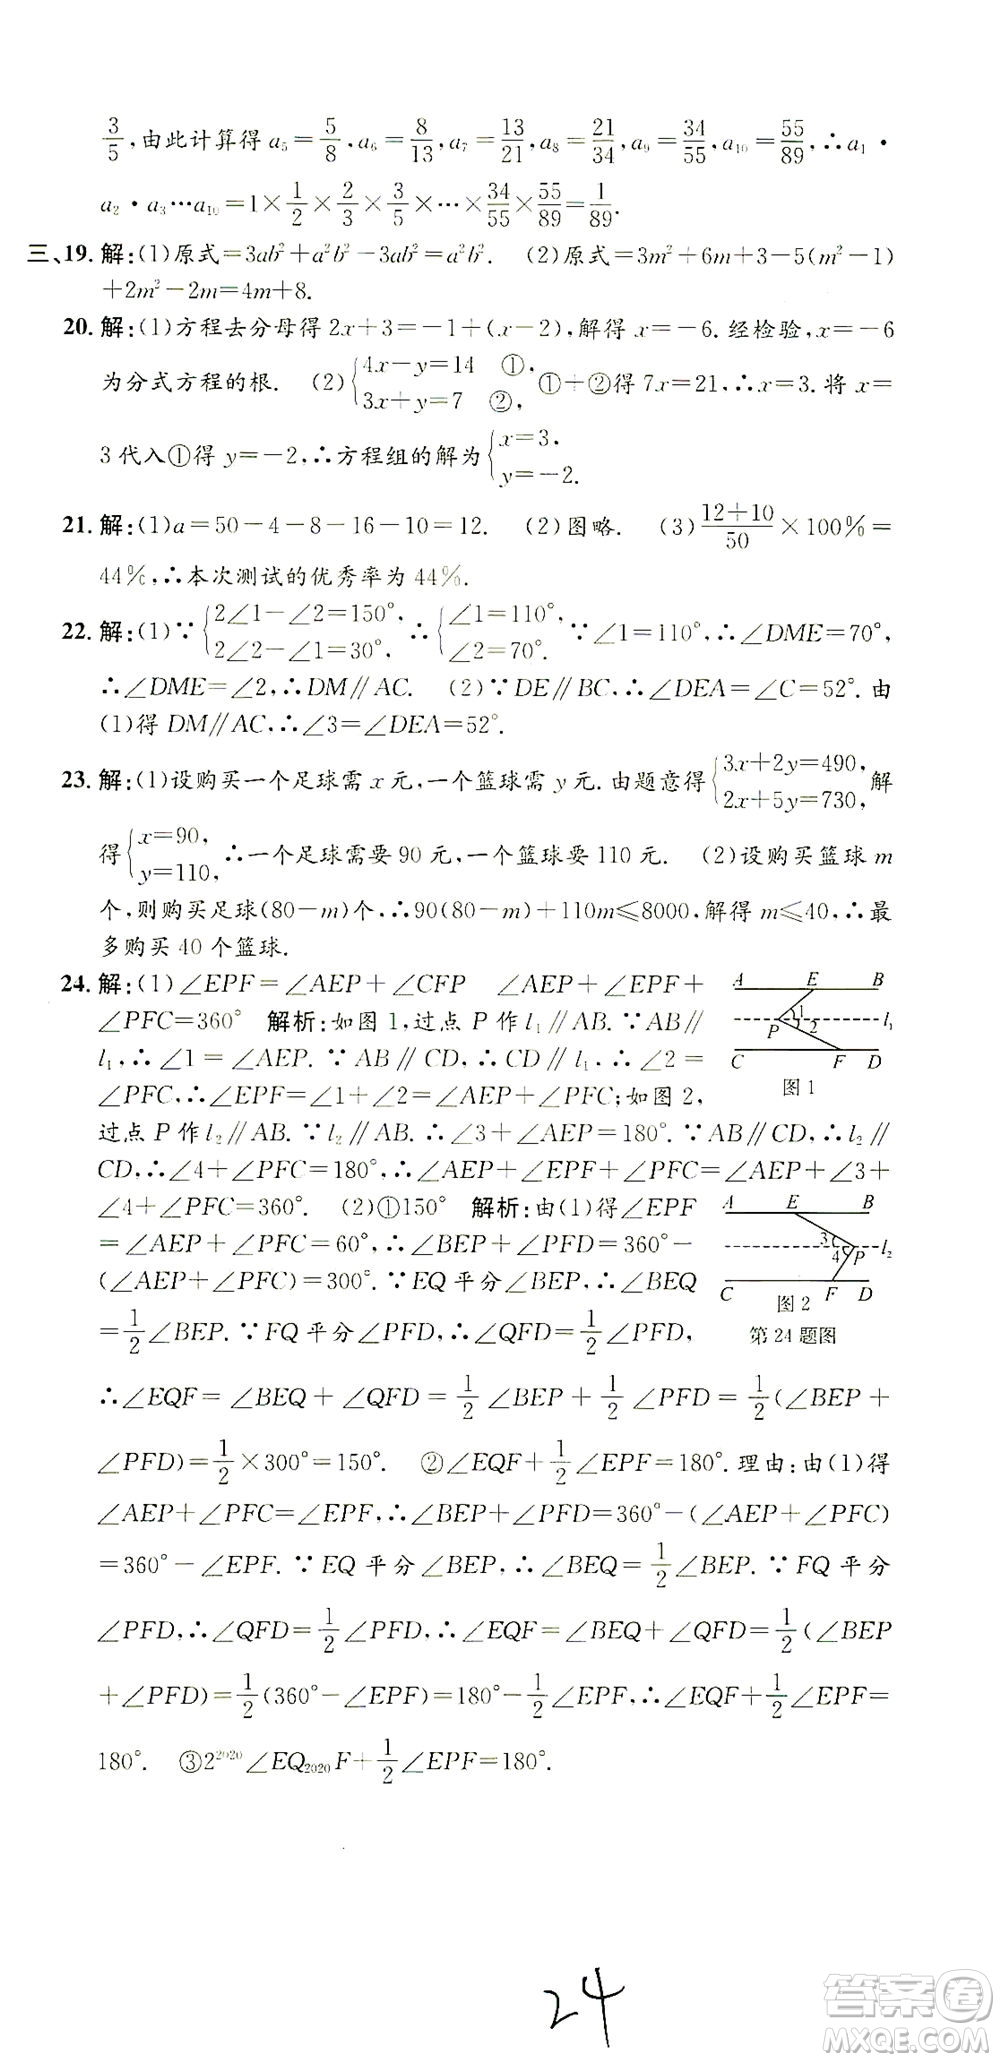 3/5,由此计算得 a₅=5/8,a₆=8/13,a₇=13/21,a₈=21/34,a₉=34/55,a₁₀=55/89,∴a₁·
a₂·a₃…a₁₀=1×1/2×2/3×3/5×…×34/55×55/89=1/89.
三、19. 解:(1)原式=3ab²+a²b²-3ab²=a²b². (2)原式=3m²+6m+3-5(m²-1)
+2m²-2m=4m+8.
20. 解:(1)方程去分母得 2x+3=-1+(x-2),解得 x=-6.经检验,x=-6
为分式方程的根. (2){4x-y=14 ①, 3x+y=7 ②, ①+②得 7x=21,∴x=3.将 x=
3代入①得 y=-2,∴方程组的解为{x=3, y=-2.
21. 解:(1)a=50-4-8-16-10=12. (2)图略. (3)(12+10)/50×100%=
44%,∴本次测试的优秀率为 44%.
22. 解:(1)∵{2∠1-∠2=150°, 2∠2-∠1=30°. ∴{∠1=110°, ∠2=70°. ∵∠1=110°,∴∠DME=70°,
∴∠DME=∠2,∴DM∥AC. (2)∵DE∥BC,∴∠DEA=∠C=52°.由
(1)得 DM∥AC,∴∠3=∠DEA=52°.
23. 解:(1)设购买一个足球需 x 元,一个篮球需 y 元.由题意得{3x+2y=490, 2x+5y=730, 解
得{x=90, y=110, ∴一个足球需要 90 元,一个篮球要 110 元. (2)设购买篮球 m
个,则购买足球(80-m)个,∴90(80-m)+110m≤8000,解得 m≤40,∴最
多购买 40 个篮球.
24. 解:(1)∠EPF=∠AEP+∠CFP ∠AEP+∠EPF+
∠PFC=360° 解析:如图 1,过点 P 作 l₁∥AB.∵AB∥
l₁,∴∠1=∠AEP.∵AB∥CD,∴CD∥l₁.∴∠2=
∠PFC,∴∠EPF=∠1+∠2=∠AEP+∠PFC;如图 2,
A E B
1
P 2 l₁
C F D
图 1
过点 P 作 l₂∥AB.∵l₂∥AB.∴∠3+∠AEP=180°.∵AB∥CD,∴l₂∥
CD,∴∠4+∠PFC=180°,∴∠AEP+∠EPF+∠PFC=∠AEP+∠3+
∠4+∠PFC=360°. (2)①150° 解析:由(1)得∠EPF
=∠AEP+∠PFC=60°,∴∠BEP+∠PFD=360°-
(∠AEP+∠PFC)=300°.∵EQ 平分∠BEP,∴∠BEQ
=1/2∠BEP.∵FQ 平分∠PFD,∴∠QFD=1/2∠PFD,
A E B
3
4 P l₂
C F D
图 2
第 24 题图
∴∠EQF=∠BEQ+∠QFD=1/2∠BEP+1/2∠PFD=1/2(∠BEP+
∠PFD)=1/2×300°=150°. ②∠EQF+1/2∠EPF=180°.理由:由(1)得
∠AEP+∠PFC=∠EPF,∴∠BEP+∠PFD=360°-(∠AEP+∠PFC)
=360°-∠EPF.∵EQ 平分∠BEP,∴∠BEQ=1/2∠BEP.∵FQ 平分
∠PFD,∴∠QFD=1/2∠PFD,∴∠EQF=∠BEQ+∠QFD=1/2(∠BEP
+∠PFD)=1/2(360°-∠EPF)=180°-1/2∠EPF,∴∠EQF+1/2∠EPF=
180°. ③2²⁰²⁰∠EQ₂₀₂₀F+1/2∠EPF=180°.
24
答案圈
MXQE.COM